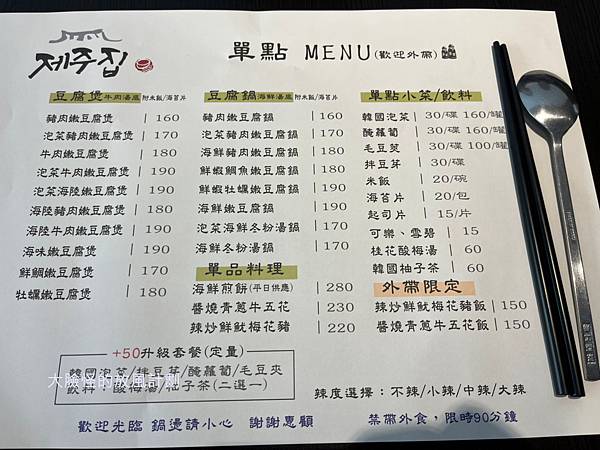 제주집
單點 MENU(歡迎外帶)
豆腐煲 牛肉湯底 附米飯/海苔片
豬肉嫩豆腐煲 | 160
泡菜豬肉嫩豆腐煲 | 170
牛肉嫩豆腐煲 | 180
泡菜牛肉嫩豆腐煲 | 190
泡菜海陸嫩豆腐煲 | 190
海陸豬肉嫩豆腐煲 | 180
海陸牛肉嫩豆腐煲 | 190
海味嫩豆腐煲 | 180
鮮鯛嫩豆腐煲 | 170
牡蠣嫩豆腐煲 | 180
豆腐鍋 海鮮湯底 附米飯/海苔片
豬肉嫩豆腐鍋 | 160
泡菜豬肉嫩豆腐鍋 | 170
海鮮豬肉嫩豆腐鍋 | 180
鮮蝦鯛魚嫩豆腐鍋 | 180
鮮蝦牡蠣嫩豆腐鍋 | 190
海鮮嫩豆腐鍋 | 190
泡菜海鮮冬粉湯鍋 | 190
海鮮冬粉湯鍋 | 170
單品料理
海鮮煎餅(平日供應) | 280
醬燒青蔥牛五花 | 230
辣炒鮮魷梅花豬 | 220
單點小菜/飲料
韓國泡菜 | 30/碟 160/罐
醃蘿蔔 | 30/碟 160/罐
毛豆莢 | 30/碟 100/罐
拌豆芽 | 30/碟
米飯 | 20/碗
海苔片 | 20/包
起司片 | 15/片
可樂、雪碧 | 15
桂花酸梅湯 | 60
韓國柚子茶 | 60
外帶限定
辣炒鮮魷梅花豬飯 | 150
醬燒青蔥牛五花飯 | 150
+50升級套餐(定量)
韓國泡菜/拌豆芽/醃蘿蔔/毛豆夾
飲料：酸梅湯/柚子茶(二選一)
大臉怪的放風計劃
辣度選擇：不辣/小辣/中辣/大辣
歡迎光臨 鍋燙請小心 謝謝惠顧
禁帶外食，限時90分鐘